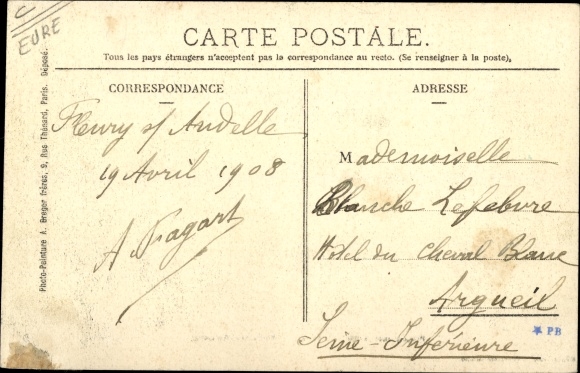 EURE
CARTE POSTALE.
Tous les pays étrangers n'acceptent pas la correspondance au recto. (Se renseigner à la poste),
CORRESPONDANCE
Fleury s/ Andelle
19 Avril 1908
A.
ADRESSE
Mademoiselle
Blanche Lefebvre
Hotel du Cheval Blanc
Argueil
Seine-Inférieure
* PB
Photo-Peinture A. Breger frères, 9, Rue Thénard, Paris. Déposé.